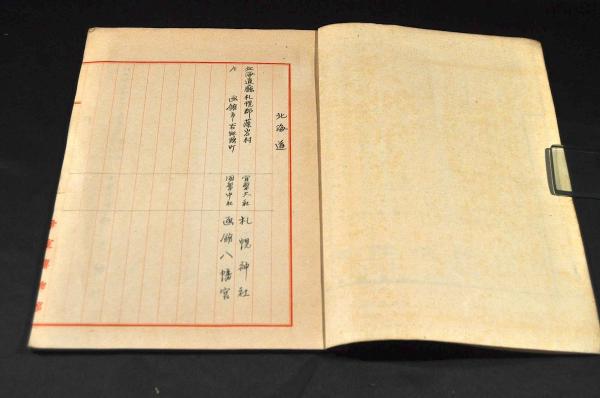 北海道
北海道廳札幌郡藻岩村
官幣大社
札幌神社
〃
函館市谷地頭町
國幣中社
函館八幡宮